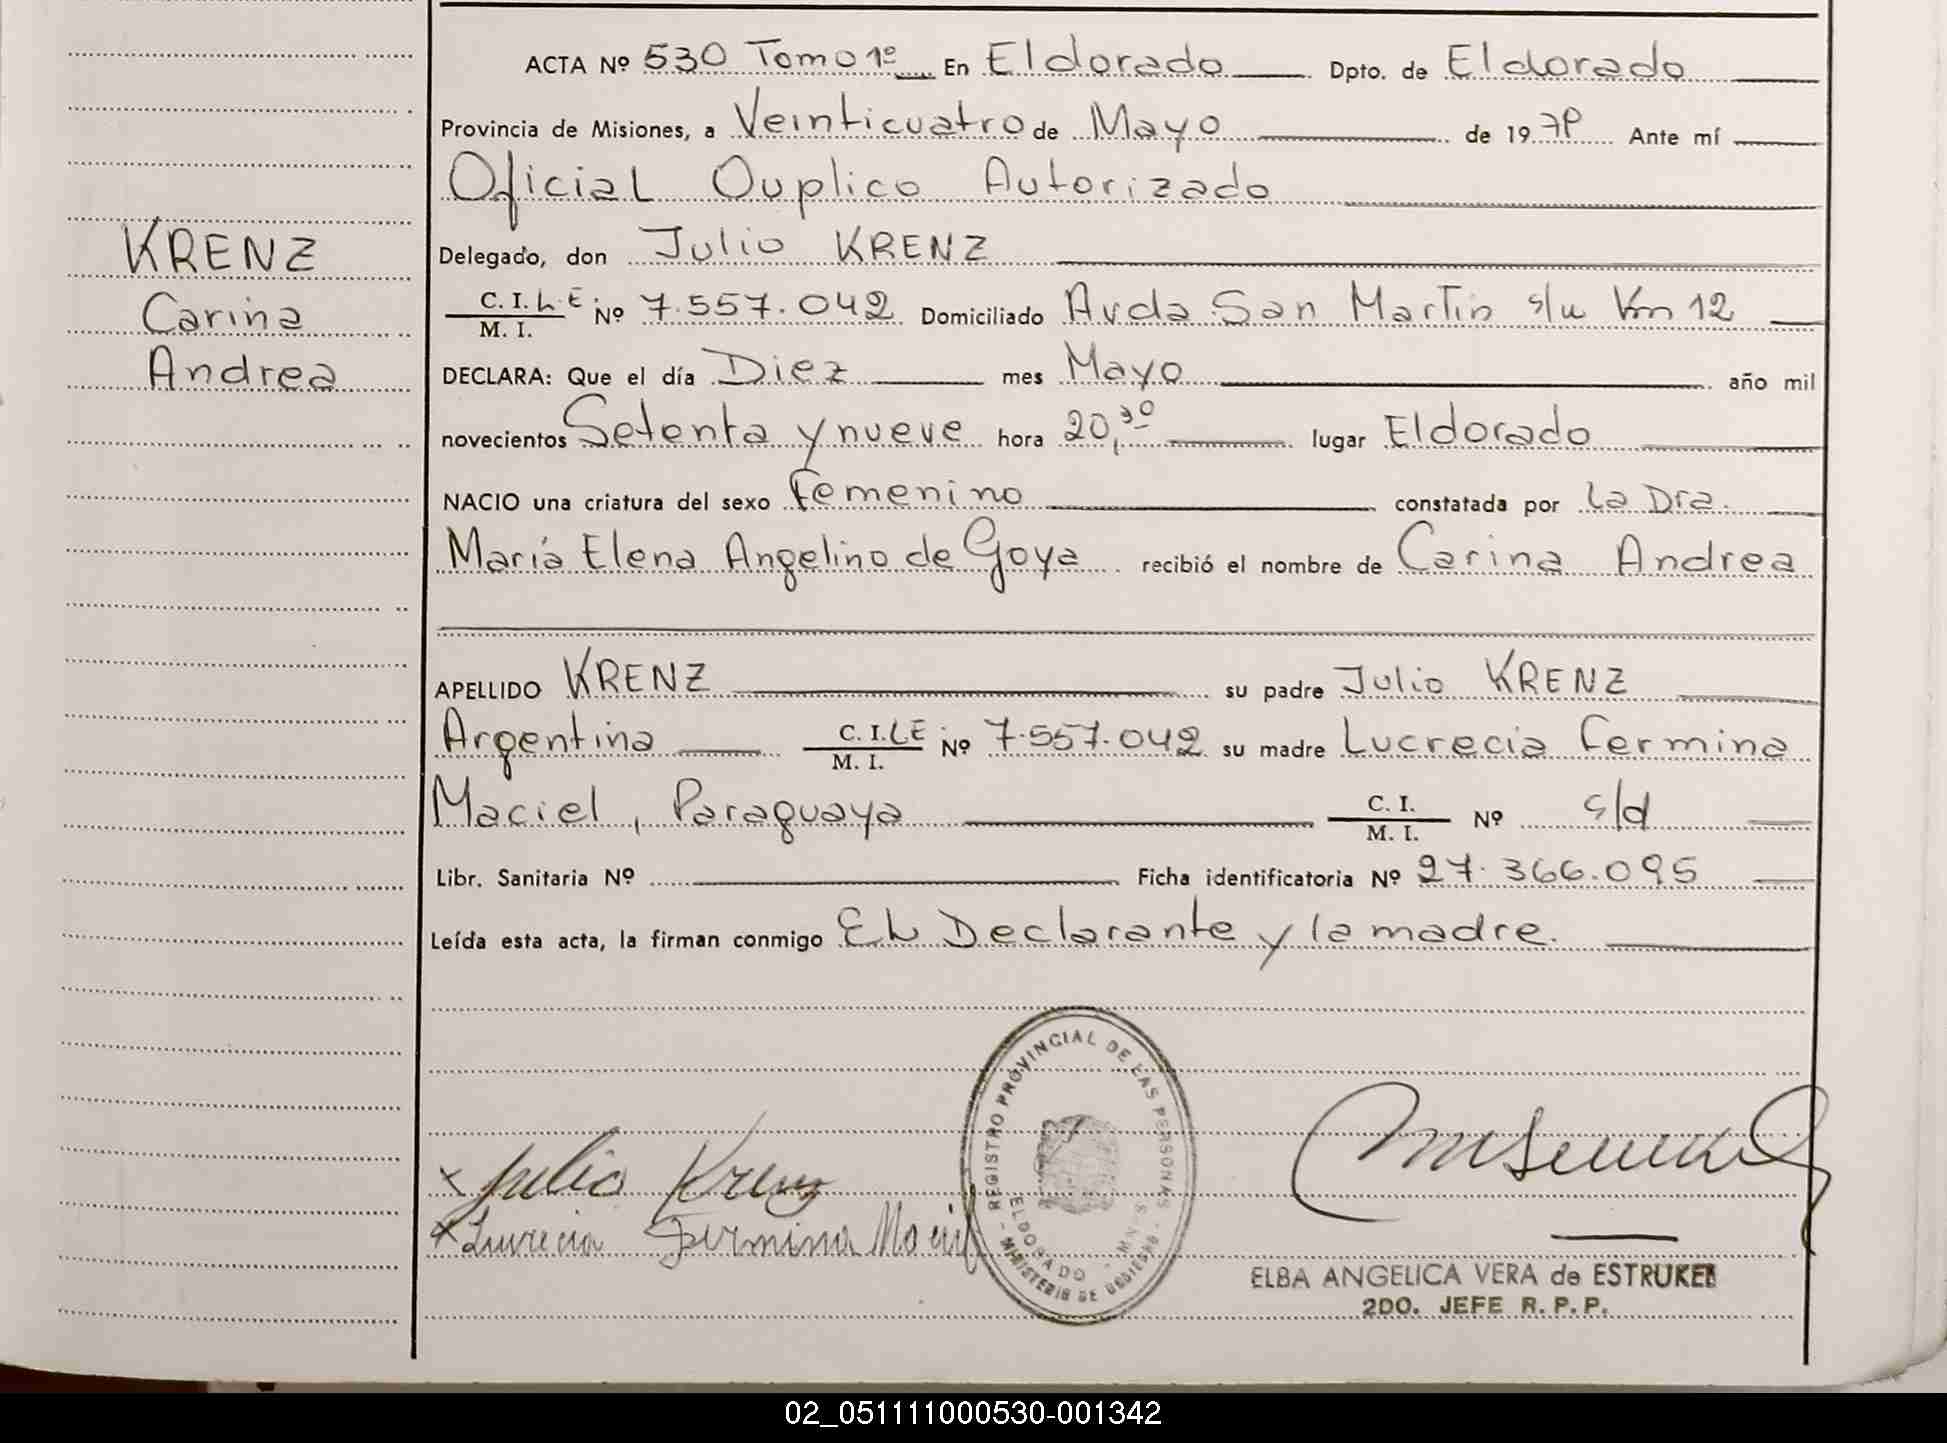 ACTA Nº 530 Tomo 1º En Eldorado Dpto. de Eldorado
Provincia de Misiones, a Veinticuatro de Mayo de 1979 Ante mí
Oficial Ouplico Autorizado
KRENZ
Carina
Andrea
Delegado, don Julio KRENZ
C. I. L.E Nº 7.557.042 Domiciliado Avda San Martin s/n Km 12
M. I.
DECLARA: Que el día Diez mes Mayo año mil
novecientos Setenta y nueve hora 20,30 lugar Eldorado
NACIO una criatura del sexo femenino constatada por la Dra.
María Elena Angelino de Goya recibió el nombre de Carina Andrea
APELLIDO KRENZ su padre Julio KRENZ
Argentina C. I. LE Nº 7.557.042 su madre Lucrecia Fermina
M. I.
Maciel, Paraguaya C. I. Nº s/d
M. I.
Libr. Sanitaria Nº Ficha identificatoria Nº 27.366.095
Leída esta acta, la firman conmigo El Declarante y la madre.
REGISTRO PROVINCIAL DE LAS PERSONAS
ELDORADO - MNES
MINISTERIO DE GOBIERNO
x Julio Krenz
x Lucrecia Fermina Maciel
ELBA ANGELICA VERA de ESTRUKEL
2DO. JEFE R. P. P.
02_051111000530-001342